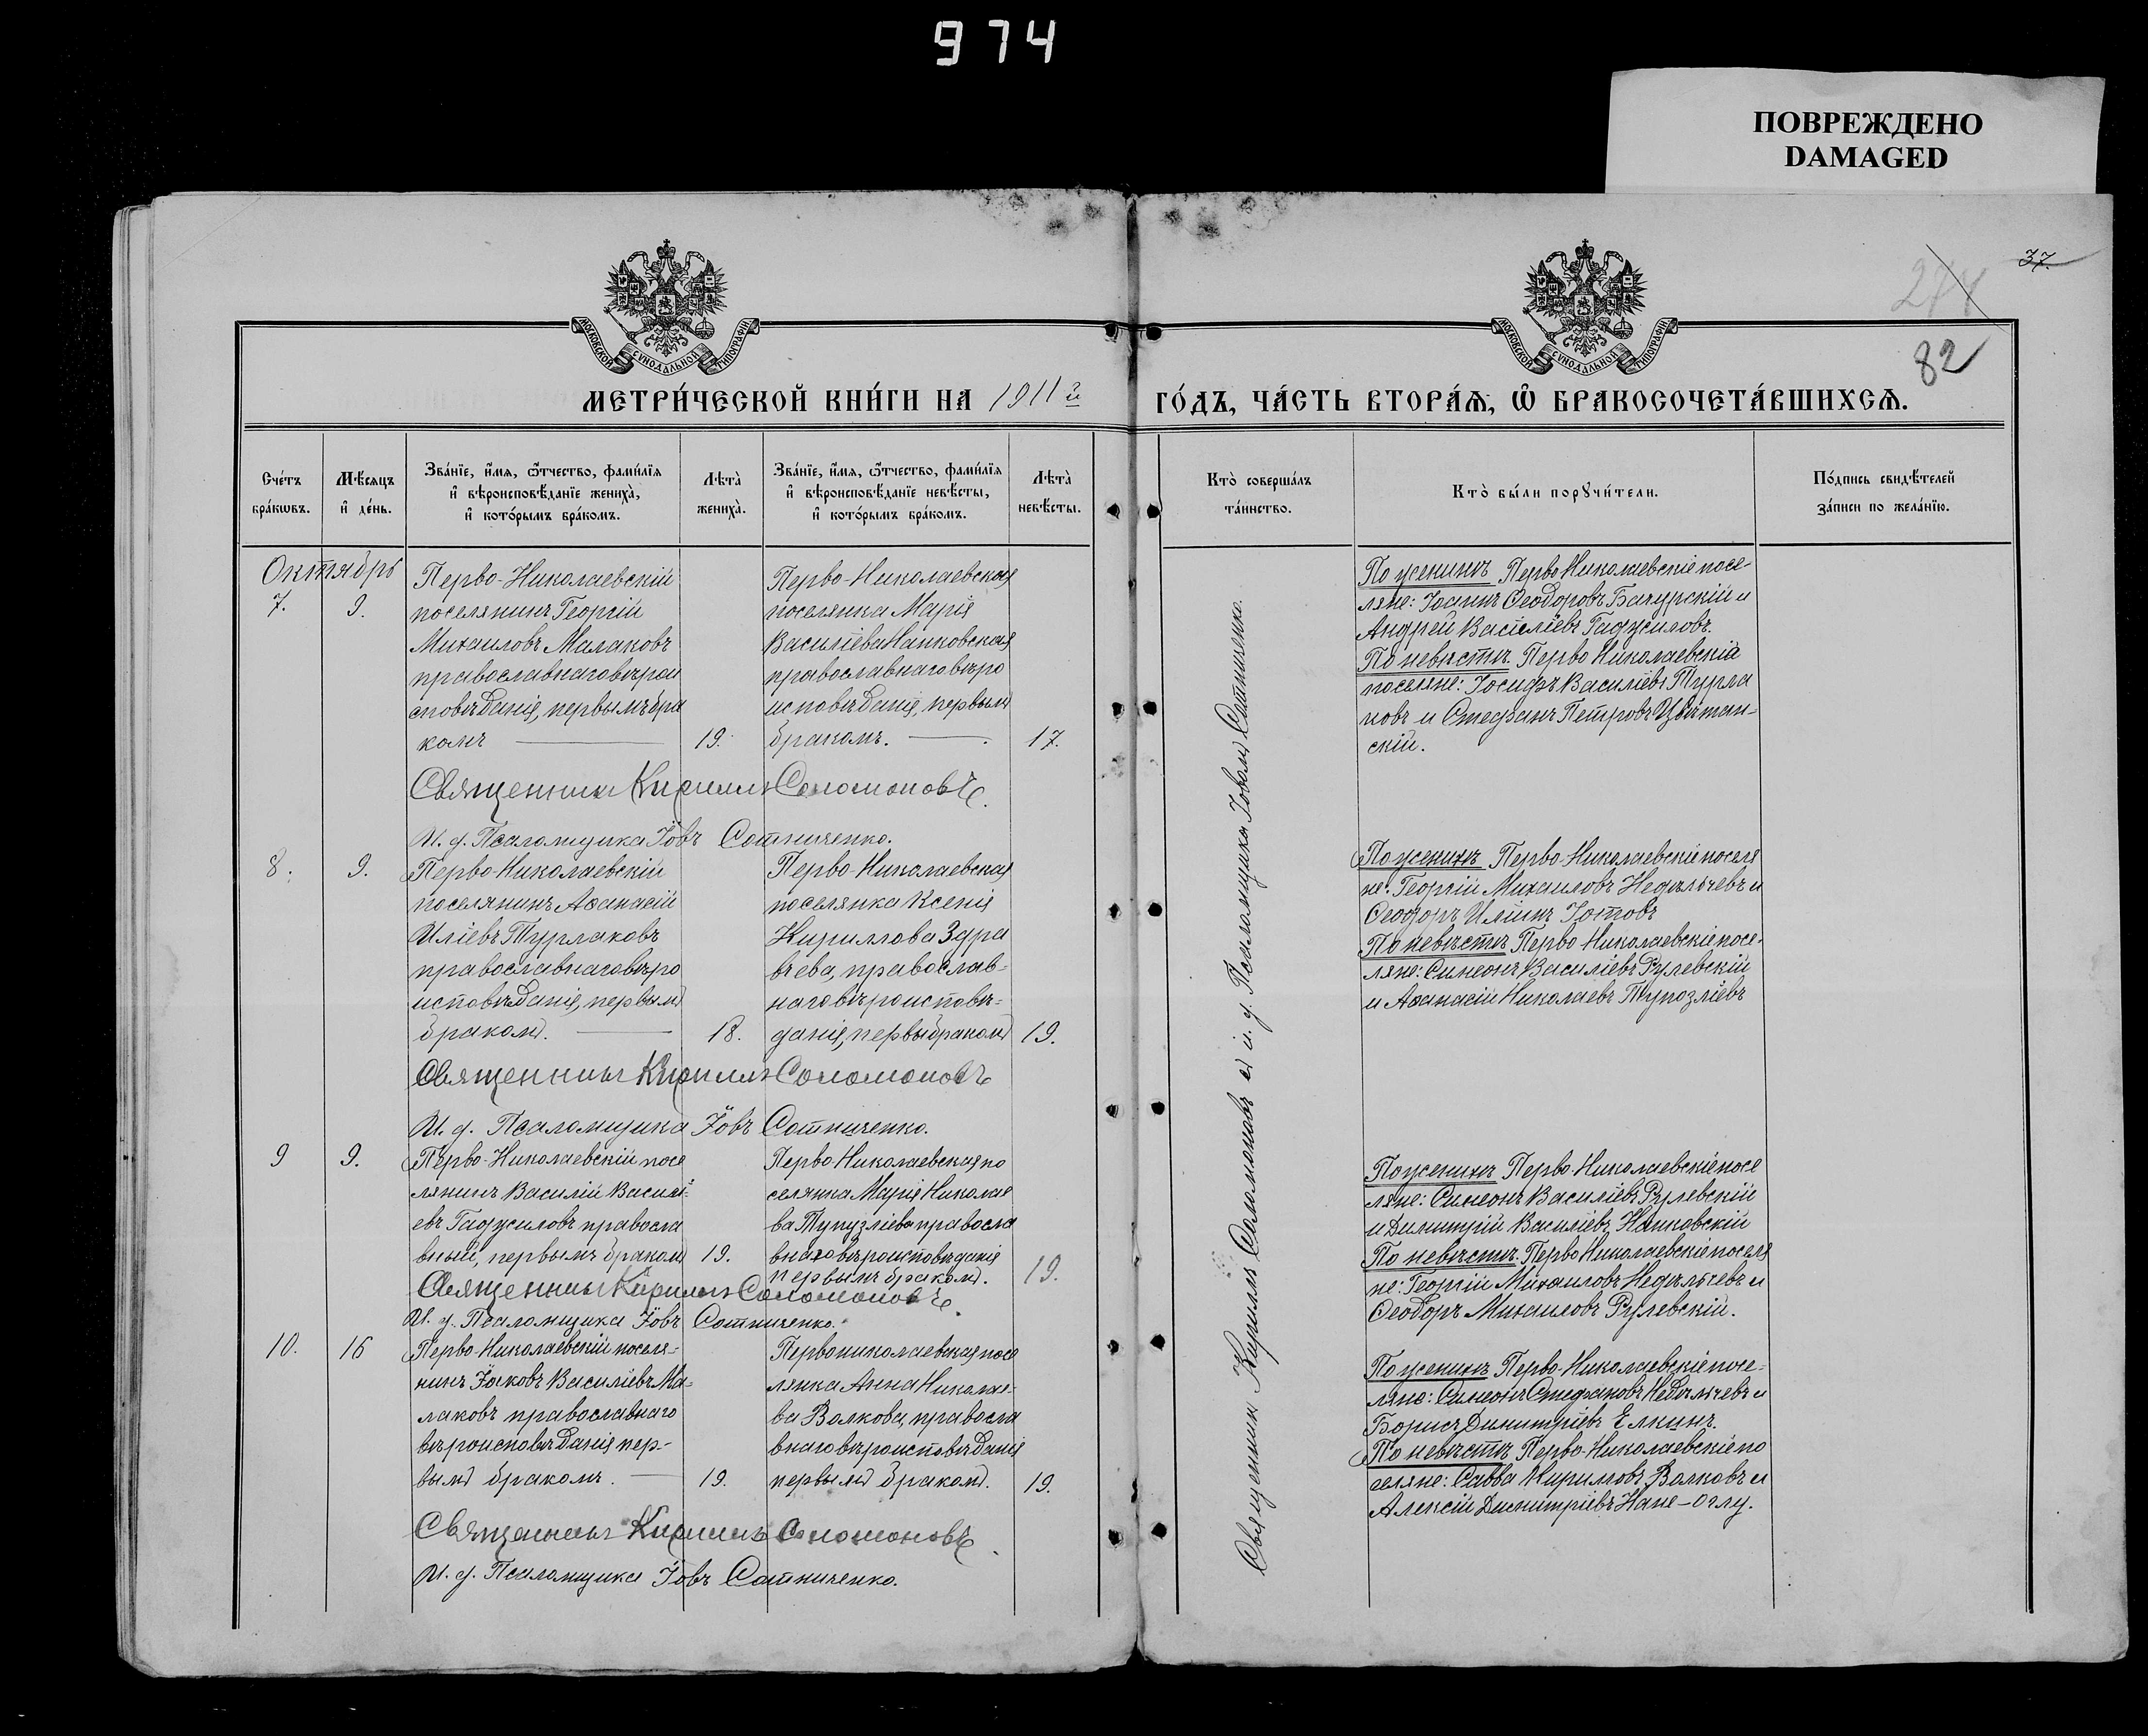 974
ПОВРЕЖДЕНО
DAMAGED
37.
274
82
МОСКОВСКОЙ СѴНОДАЛЬНОЙ ТИПОГРАФІИ
МОСКОВСКОЙ СѴНОДАЛЬНОЙ ТИПОГРАФІИ
МЕТРИ́ЧЕСКОЙ КНИ́ГИ НА 1911й ГО́ДЪ, ЧА́СТЬ ВТОРА́Ѧ, Ѡ҆ БРАКОСОЧЕТА́ВШИХСѦ.
Сче́тъ
бра́кѡвъ.
Мѣ́сяцъ
и҆ де́нь.
Зва́нїе, и҆́мя, ѻ҆́тчество, фами́лїя
и҆ вѣроисповѣ́данїе жениха̀,
и҆ кото́рымъ бра́комъ.
Лѣта̀
жениха̀.
Зва́нїе, и҆́мя, ѻ҆́тчество, фами́лїя
и҆ вѣроисповѣ́данїе невѣ́сты,
и҆ кото́рымъ бра́комъ.
Лѣта̀
невѣ́сты.
Кто̀ соверша́лъ
та́инство.
Кто̀ бы́ли порꙋчи́тели.
По́дпись свидѣ́телей
за́писи по жела́нїю.
Октябрь
7.
9.
Перво-Николаевскій
поселянинъ Георгій
Михаиловъ Малаковъ
православнаго вѣрои
сповѣданія, первымъ бра
комъ
19.
Перво-Николаевская
поселянка Марія
Василіева Напковская
православнаго вѣро
исповѣданія, первым
бракомъ.
17.
По женихѣ Перво Николаевскіе посе-
ляне: Іоаннъ Ѳеодоровъ Бачурскій и
Андрей Василіевъ Гаджиловъ.
По невѣстѣ. Перво Николаевскія
поселяне: Іосифъ Василіевъ Турла
ковъ и Стефанъ Петровъ Цвѣтан-
скій.
Священникъ Кириллъ Соломоновъ.
И. д. Псаломщика Іовъ Сотниченко.
8.
9.
Перво-Николаевскій
поселянинъ Аѳанасій
Иліевъ Турлаковъ
православнаго вѣро
исповѣданія, первым
браком.
18.
Перво-Николаевская
поселянка Ксенія
Кириллова Здра
вчева, православ-
наго вѣроисповѣ-
данія, первы браком
19.
По женихѣ Перво-Николаевскіе поселя
не: Георгій Михаиловъ Недѣльчевъ и
Ѳеодоръ Иліинъ Іотовъ
По невѣстѣ Перво Николаевскіе посе-
ляне: Симеонъ Василіевъ Рулевскій
и Аѳанасій Николаевъ Тупозліевъ
Священникъ Кириллъ Соломоновъ
И. д. Псаломщика Іовъ Сотниченко.
9
9.
Перво-Николаевскій посе
лянинъ Василій Василі-
евъ Гаджиловъ правосла
вный, первымъ браком
19.
Перво Николаевская по
селянка Марія Николае
ва Тупузліева правосла
внаго вѣроисповѣданія
первымъ браком.
19.
По женихѣ Перво-Николаевскіе посе
ляне: Симеонъ Василіевъ Рулевскій
и Димитрій Василіевъ Напковскій
По невѣстѣ. Перво Николаевскіе поселя
не: Георгій Михаиловъ Недѣльчевъ и
Ѳеодоръ Михаиловъ Рулевскій.
Священникъ Кириллъ Соломоновъ.
И. д. Псаломщика Іовъ Сотниченко.
10.
16
Перво-Николаевскій поселя-
нинъ Іаковъ Василіевъ Ма-
лаковъ православнаго
вѣроисповѣданія пер-
вым бракомъ.
19.
Первониколаевская посе
лянка Анна Николае-
ва Волкова, правосла
внаго вѣроисповѣданія
первым браком.
19.
По женихѣ Перво-Николаевскіе посе-
ляне: Симеонъ Стефановъ Недѣльчевъ и
Борисъ Димитріевъ Елкинъ.
По невѣстѣ Перво-Николаевскіе по
селяне: Савва Кириловъ Волковъ и
Алексій Димитріевъ Напе-Оглу.
Священникъ Кириллъ Соломоновъ.
И. д. Псаломщика Іовъ Сотниченко.
Священник Кириллъ Соломоновъ с и. д. Псаломщика Іовом Сотниченко.